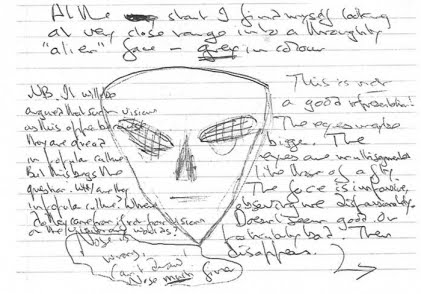 At the start I find myself looking
at very close range into a
"alien" face – grey in colour
This is not
a good representation!
The eyes maybe
bigger. The
eyes are multisegmented
like those of a fly.
The face is impassive,
observing me dispassionately.
Doesn't seem good. Or
particularly bad. Then
disappears.
NB. It will be
argued that such visions
as this often occur because
they are a great
in popular culture
But this begs the
question. Why are they
in popular culture? Where
do they come from if not from visions
or the visionary worlds?
Nose is
wrong,
I can't draw
Nose much finer